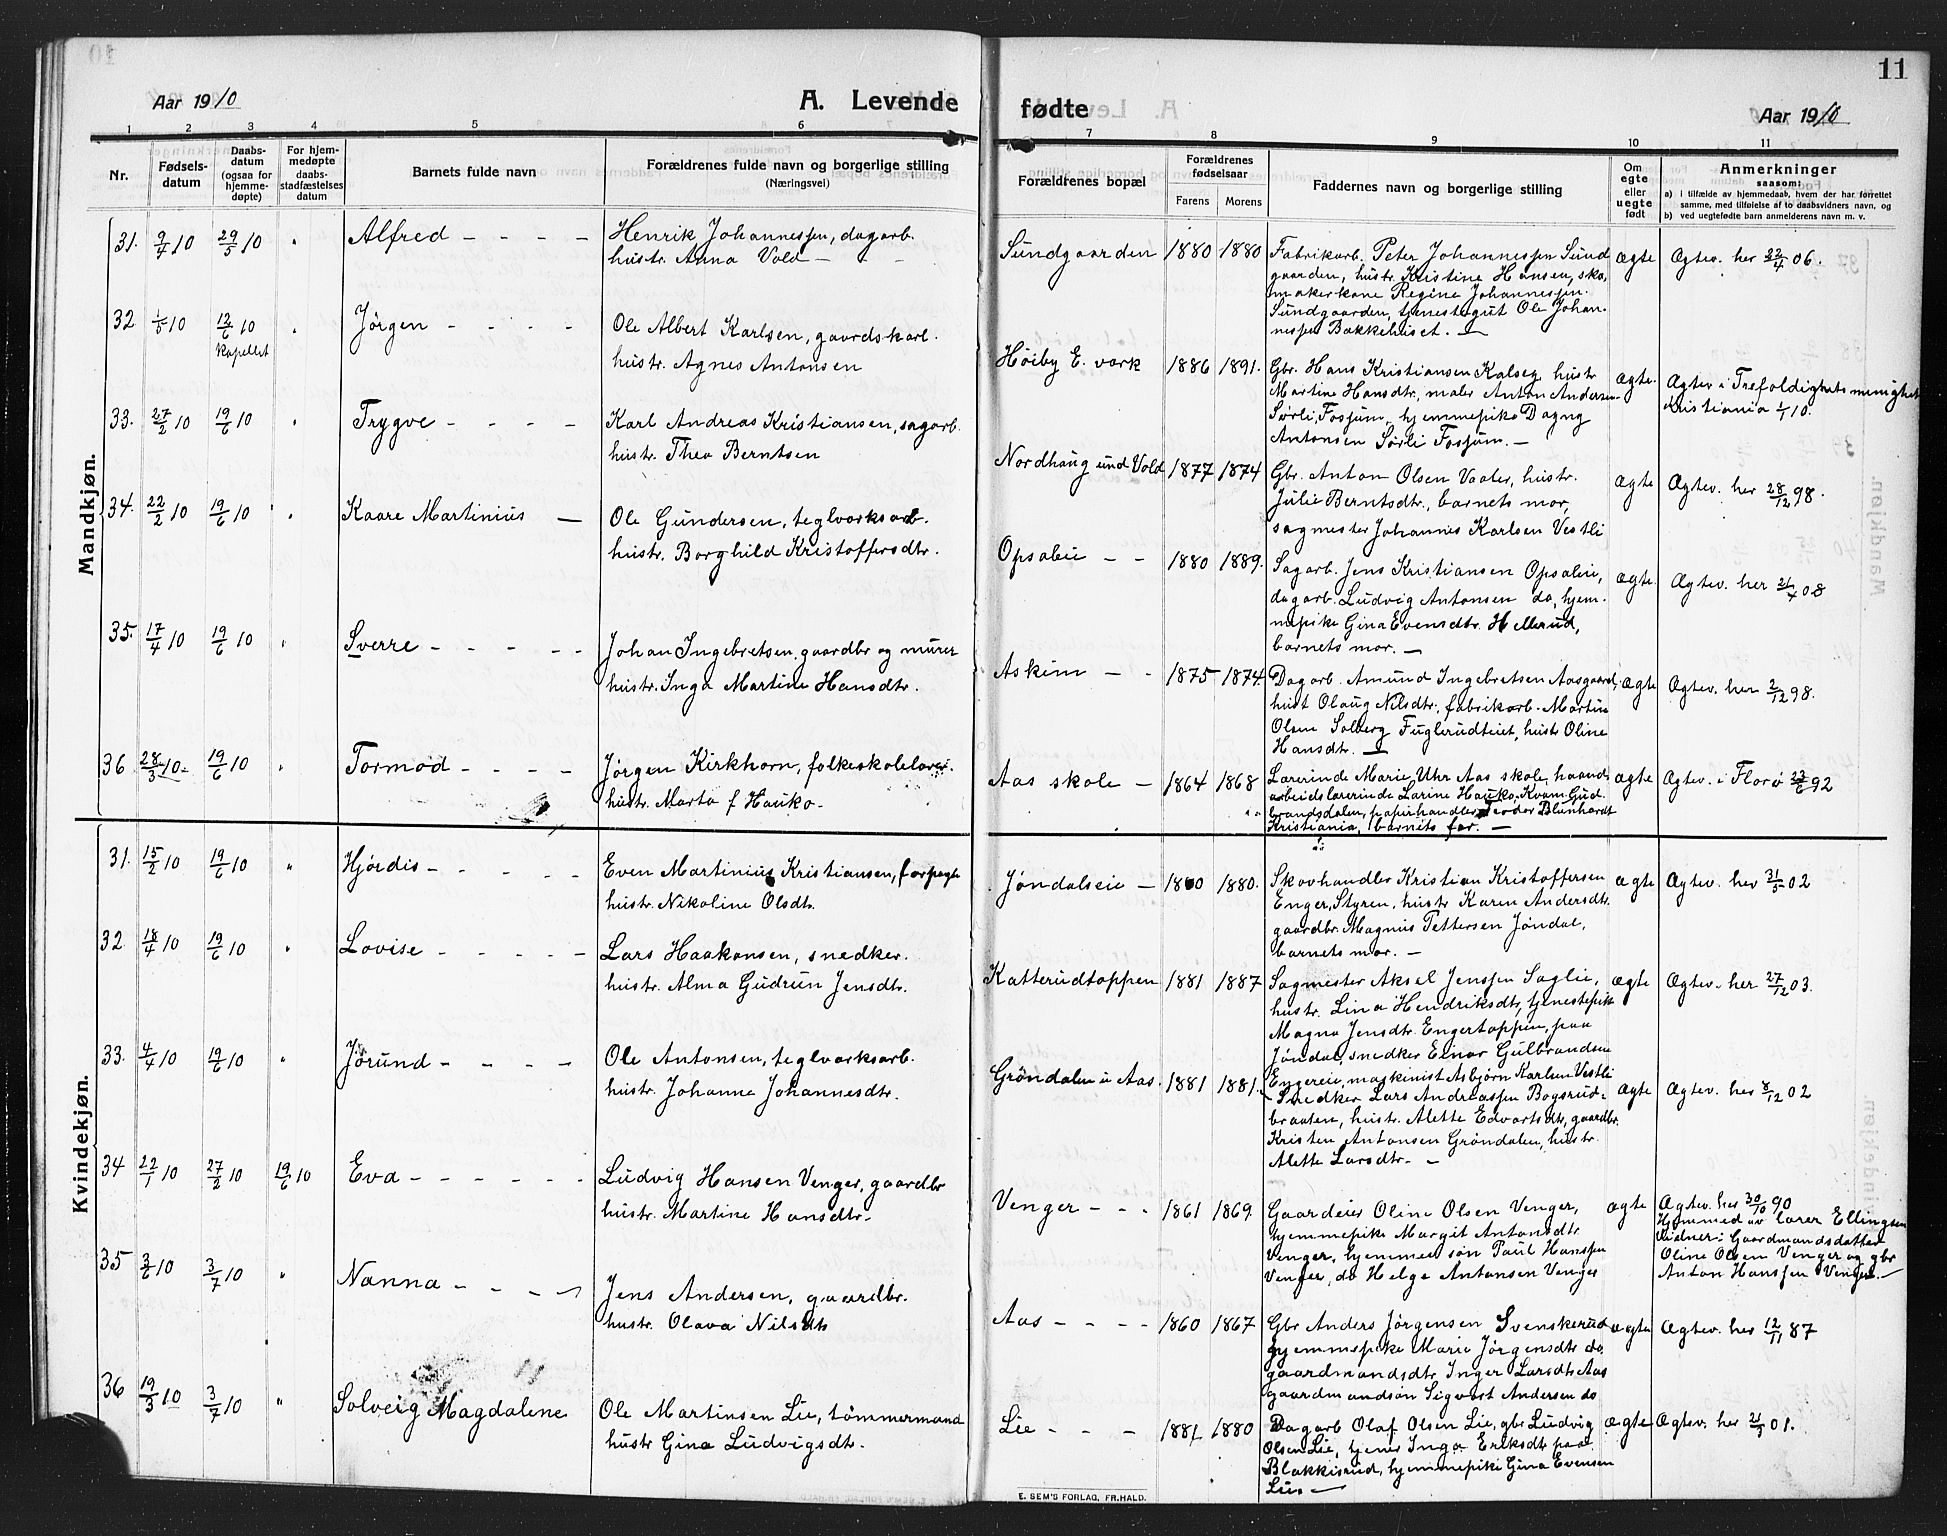 11
Aar 1910
A. Levende fødte
Aar 1910
1 2 3 4 5 6 7 8 9 10 11
Nr.
Fødsels-datum
Daabs-datum (ogsaa for hjemme-døpte)
For hjem-medøpte daabs-stadfæstelses datum
Barnets fulde navn
Forældrenes fulde navn og borgerlige stilling (Næringsvei)
Forældrenes bopæl
Forældrenes fødselsaar
Farens Morens
Faddernes navn og borgerlige stilling
Om egte eller uegte født
Anmerkninger
saasom:
a) i tilfælde av hjemmedaab, hvem der har forrettet samme, med tilføielse af to daabsvidners navn, og
b) ved uegtefødte barn anmelderens navn m. v.
Mandkjøn.
31. 9/4 10 29/5 10 " Alfred - - - -
Henrik Johannessen, dagarb.
hustr. Anna Vold -
Sundgaarden 1880 1880
Fabrikarb. Peter Johannessen Sund
gaarden, hustr. Kristine Hansen, sko,
makerkone Regine Johannessen.
Sundgaarden, tjenestegut Ole Johan-
nessen Bakkehuset. -
ægte Ægtev. her 22/4 06.
32 1/5 10 12/6 10 " Jørgen - - - -
kapellet
Ole Albert Karlsen, gaardskarl.
hustr. Agnes Antonsen
Høiby E. værk 1886 1891.
Gbr. Hans Kristiansen Kalseg, hustr
Martine Hansdtr, maler Anton Andersen
Sørli, Fossum, hjemmepike Dagny
Antonsen Sørli Fossum. -
ægte. Ægtev i Trefoldighetsmenighet
Kristiania 1/1 10.
33. 27/2 10 19/6 10 " Trygve - - - -
Karl Andreas Kristiansen, sagarb.
hustr. Thea Berntsen
Nordhaug und Vold 1877 1874
Gbr. Anton Olsen Vaaler, hustr.
Julie Berntsdtr, barnets mor,
sagmester Johannes Karlsen Vestli
ægte Ægtev. her 28/12 98.
34. 22/2 10 19/6 10 " Kaare Martinius -
Ole Gundersen, teglværksarb.
hustr. Borghild Kristoffersdtr.
Opsaleie - - 1880 1889.
Sagarb. Jens Kristiansen Opsaleie,
dagarb. Ludvig Antonsen do, hjem-
mepike Gina Evensdtr. Hellerud,
barnets mor. -
ægte. Ægtev. her 21/4 08
35. 17/4 10 19/6 10 " Sverre - - - -
Johan Ingebretsen, gaardbr og murer
hustr. Inga Martine Hansdtr.
Askim - - 1875 1874
Dagarb. Amund Ingebretsen Aasgaard,
hust Olaug Nilsdtr., fabrikarb. Martin
Olsen Solberg Fuglerudteiet, hustr Oline
Hansdtr. -
ægte Ægtev. her 2/12 98.
36 28/3 10 19/6 10 " Tormod - - - -
Jørgen Kirkhorn, folkeskolelærer.
hustr. Marta f Hauko -
Aas skole - 1864 1868
Lærerinde Marie Uhr Aas skole, haand
arbeidslærerinde Larine Hauko, Kvam Gud
brandsdalen, papirhandler Teodor Blunhardt
Kristiania, barnets far. -
ægte Ægtev. i Florø 23/6 92
Kvindekjøn.
31. 15/2 10 19/6 10 " Hjørdis - - - -
Even Martinius Kristiansen, forpagte
hustr. Nikoline Olsdtr.
Jøndalseie - 1880 1880.
Skovhandler Kristian Kristoffersen
Enger, Styren, hustr Karen Andersdtr.
gaardbr. Magnus Pettersen Jøndal,
barnets mor. -
ægte Ægtev. her 31/5 02
32 18/4 10 19/6 10 " Lovise - - - -
Lars Haakonsen, snedker.
hustr. Alma Gudrun Jensdtr.
Katterudtoppen 1881 1887
Sagmester Aksel Jenssen Saglie,
hustr. Lina Hendriksdtr, tjenestepik
Magna Jensdtr. Engertoppen, paa
Jøndal, snedker Einar Gulbrandsen
Engereie, maskinist Asbjørn Karlsen Vestli
ægte Ægtev. her 27/12 03.
33. 4/4 10 19/6 10 " Jørund - - - -
Ole Antonsen, teglværksarb.
hustr. Johanne Johannesdtr.
Grøndalen u Aas. 1881 1881.
Snedker Lars Andreassen Bøgsrud-
braaten, hustr. Alette Edvartsdtr, gaardbr.
Kristen Antonsen Grøndalen, hustr.
Alette Larsdtr. -
ægte Ægtev. her 8/12 02
34 22/1 10 27/2 10 19/6 10 Eva - - - - -
Ludvig Hansen Venger, gaardbr
hustr. Martine Hansdtr.
Venger - - - 1861 1869
Gaardeier Oline Olsen Venger,
hjemmepike Margit Antonsdtr
Venger, hjemmev. søn Paul Hanssen
Venger, do Helge Antonsen Venger
ægte Ægtev. her 30/10 90
Hjemmed av lærer Ellingsen
Vidner: Gaardmandsdatter
Oline Olsen Venger og gbr
Anton Hanssen Venger. -
35 3/6 10 3/7 10 " Nanna - - - -
Jens Andersen, gaardbr.
hustr. Olava Nilsdtr
Aas - - - - 1860 1867
Gbr Anders Jørgensen Svenskerud
hjemmepike Marie Jørgensdtr do
gaardmandsdtr. Inger Larsdtr Aas
gaardmandsøn Sigvart Andersen do
ægte Ægtev. her 12/11 87
36 19/3 10 3/7 10 " Solveig Magdalene
Ole Martinsen Lie, tømmermand
hustr Gina Ludvigsdtr.
Lie - - - 1881 1880
Dagarb Olaf Olsen Lie, gbr Ludvig
Olsen Lie, tjener Inga Eriksdtr paa
Blakkisrud, hjemmepike Gina Evensen
Lie. -
ægte Ægtev. her 01.
E. SEM'S FORLAG, FR.HALD.